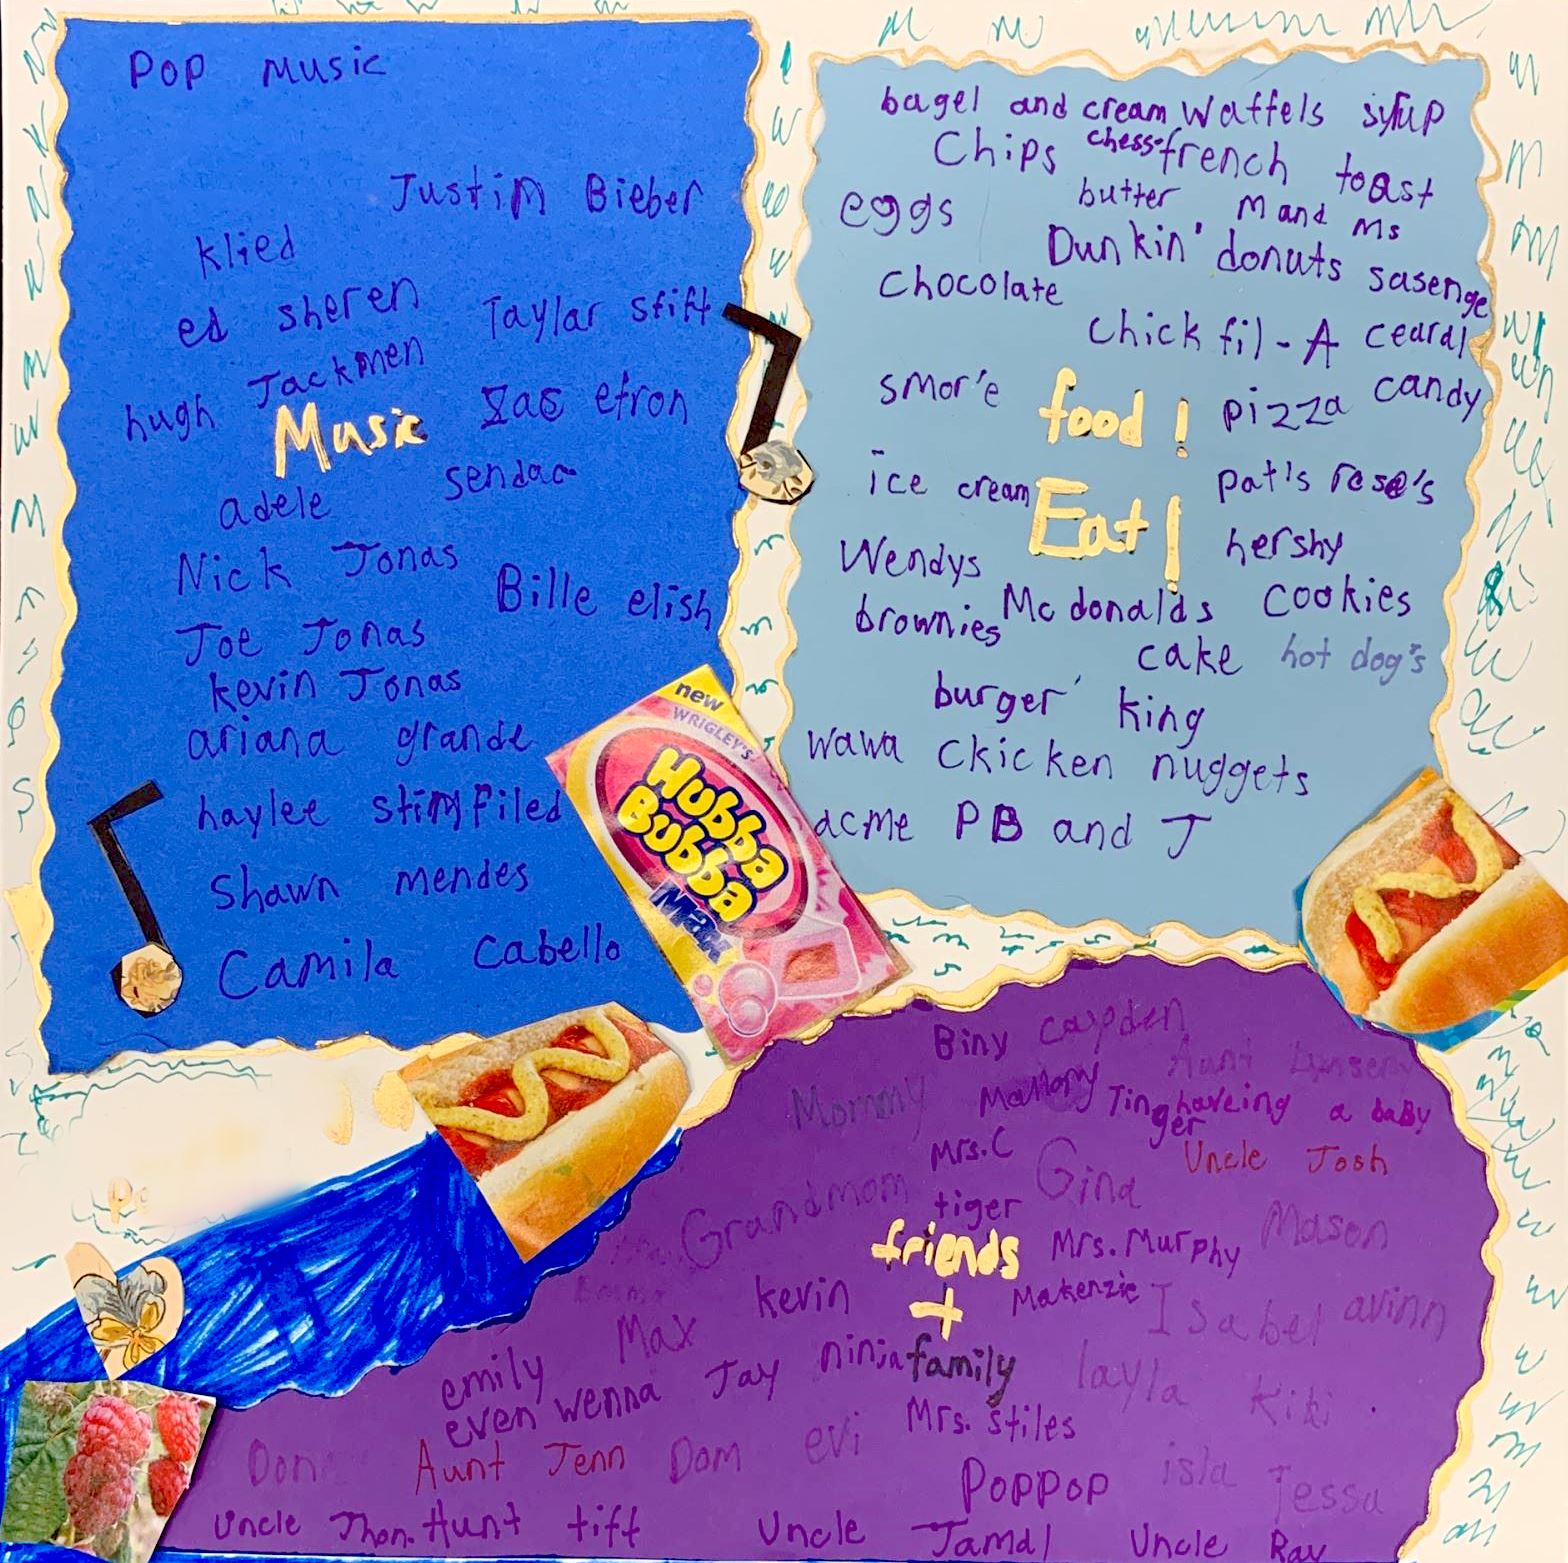 Pop Music
Justin Bieber
klied
ed sheren
Taylar stift
hugh Jackmen
Zac efron
Music
sendac
adele
Nick Jonas
Bille elish
Joe Jonas
kevin Jonas
ariana grande
haylee stimfiled
Shawn mendes
Camila Cabello
new
WRIGLEY'S
Hubba
Bubba
Max
bagel and cream chess waffels syrup
Chips french toast
eggs butter M and Ms
Dunkin' donuts sasenge
Chocolate
chick fil-A cearal
smor'e food! pizza candy
ice cream Eat! pat's rose's
Wendys hershy
brownies Mc donalds cookies
cake hot dog's
burger king
wawa Ckicken nuggets
acme PB and J
Biny cayden
Aunt Lynsen
Mommy Mallory Tingher haveing a baby
Mrs.C
Uncle Josh
Grandmom tiger Gina
friends Mrs. Murphy Mason
+
Emma kevin Makenzie Isabel avinn
Max
emily Jay ninja family layla Kiki
even wenna
Mrs. Stiles
Aunt Jenn Dom evi
Poppop isla Tessa
Uncle Jhon Aunt tiff Uncle Jamal Uncle Ray